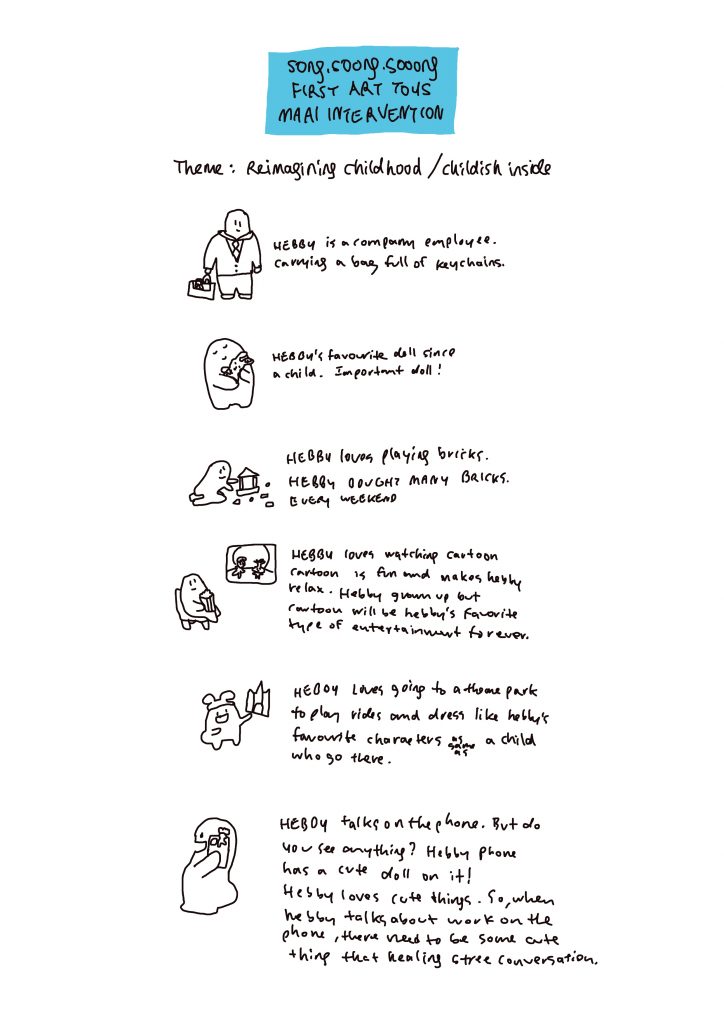 song.soong.sooong
FIRST ART TOYS
MAAI INTERVENTION
Theme: Reimagining childhood / childish inside
HEBBY is a company employee.
carrying a bag full of keychains.
HEBBY's favourite doll since
a child. Important doll!
HEBBY loves playing bricks.
HEBBY BOUGHT MANY BRICKS.
EVERY WEEKEND
HEBBY loves watching cartoon
cartoon is fun and makes hebby
relax. Hebby grown up but
cartoon will be hebby's favorite
type of entertainment forever.
HEBBY Loves going to a theme park
to play rides and dress like hebby's
favourite characters as same as a child
who go there.
HEBBY talks on the phone. But do
you see anything? Hebby phone
has a cute doll on it!
Hebby loves cute things. So, when
hebby talks about work on the
phone, there need to be some cute
thing that healing stree conversation.